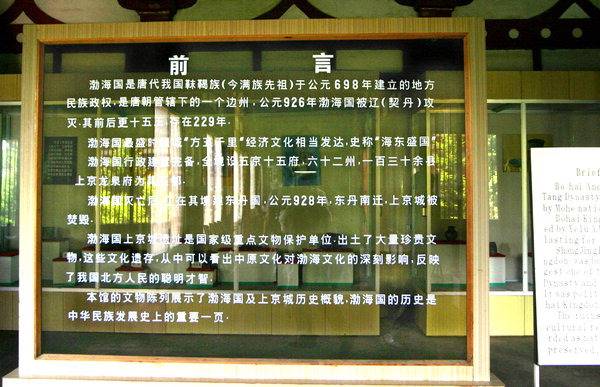 前 言
渤海国是唐代我国靺鞨族(今满族先祖)于公元698年建立的地方
民族政权,是唐朝管辖下的一个边州,公元926年渤海国被辽(契丹)攻
灭.其前后更十五 存在229年.
渤海国最盛时 "方五千里"经济文化相当发达,史称"海东盛国"
渤海国行政建置完备,全境设五京十五府,六十二州,一百三十余县
上京龙泉府为其 都.
渤海国灭亡后 在其境 东丹国,公元928年,东丹南迁,上京城被
焚毁.
渤海国上京城遗址是国家级重点文物保护单位.出土了大量珍贵文
物,这些文化遗存,从中可以看出中原文化对渤海文化的深刻影响,反映
了我国北方人民的聪明才智.
本馆的文物陈列展示了渤海国及上京城历史概貌,渤海国的历史是
中华民族发展史上的重要一页.
Brief
Bo hai Anc
Tang Dynasty
by Mohe natio
Bohai King
ed by Yelu
lasting for
ShangJing
ngdon was lo
gest one of t
Dynasty and
It was politi
hai Kingdom
The ruins
cultural re
rded as nat
preserved,